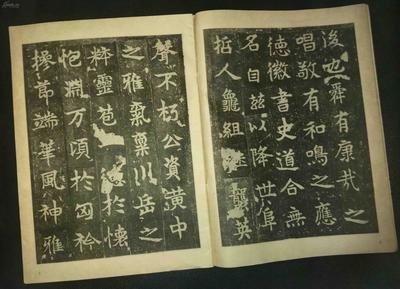 後也舜有康哉之
唱敬有和鳴之應
徳徽書史道合無
名自茲以降世阜
哲人龜組継襲英
聲不朽公資黃中
之雅氣稟川岳之
粹靈苞德於懷
抱淵万頃於匈衿
操莭端華風神雅